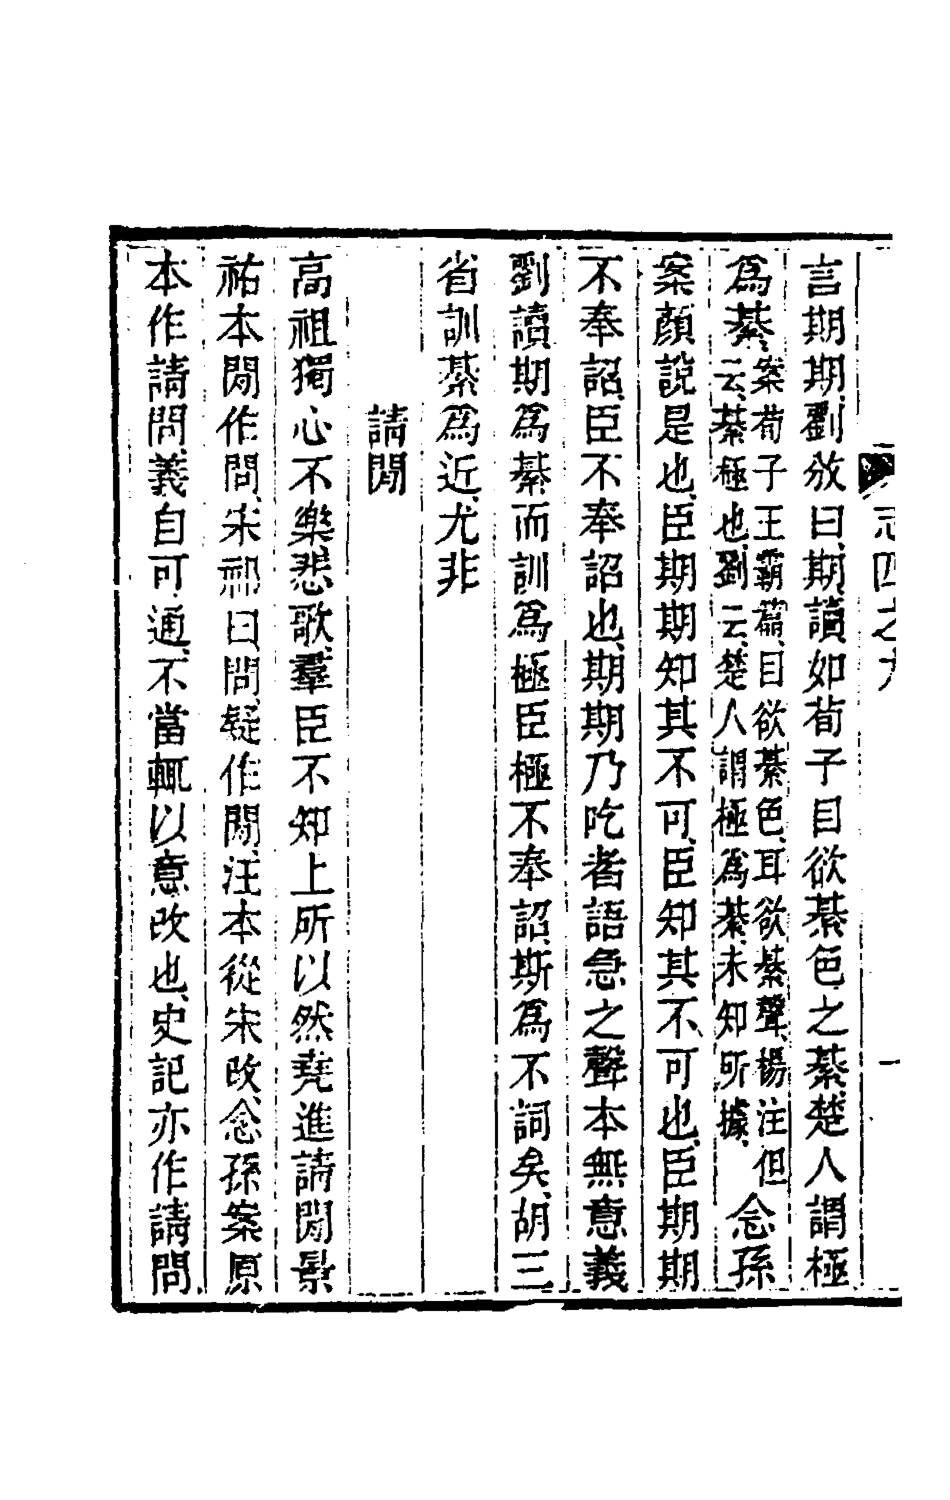 志四之九
一
言期期劉攽曰期讀如荀子目欲綦色之綦楚人謂極
爲綦案荀子王霸篇目欲綦色耳欲綦聲楊注但云綦極也劉云楚人謂極爲綦未知所據念孫
案顏說是也臣期期知其不可臣知其不可也臣期期
不奉詔臣不奉詔也期期乃吃者語急之聲本無意義
劉讀期爲綦而訓爲極臣極不奉詔斯爲不詞矣胡三
省訓綦爲近尤非
請閒
高祖獨心不樂悲歌羣臣不知上所以然堯進請閒景
祐本閒作問宋祁曰問疑作閒汪本從宋改念孫案原
本作請問義自可通不當輒以意改也史記亦作請問